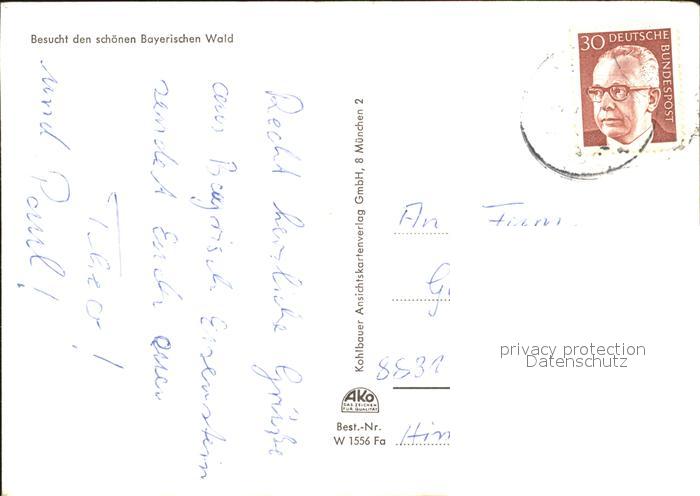 Besucht den schönen Bayerischen Wald
30 DEUTSCHE BUNDESPOST
Recht herzliche Grüße
aus Bayrisch Eisenstein
sendet Euch allen
Theo!
und Paul!
Kohlbauer Ansichtskartenverlag GmbH, 8 München 2
An Firm
8531
AKO
DAS ZEICHEN
FÜR QUALITÄT
Best.-Nr.
W 1556 Fa
privacy protection
Datenschutz